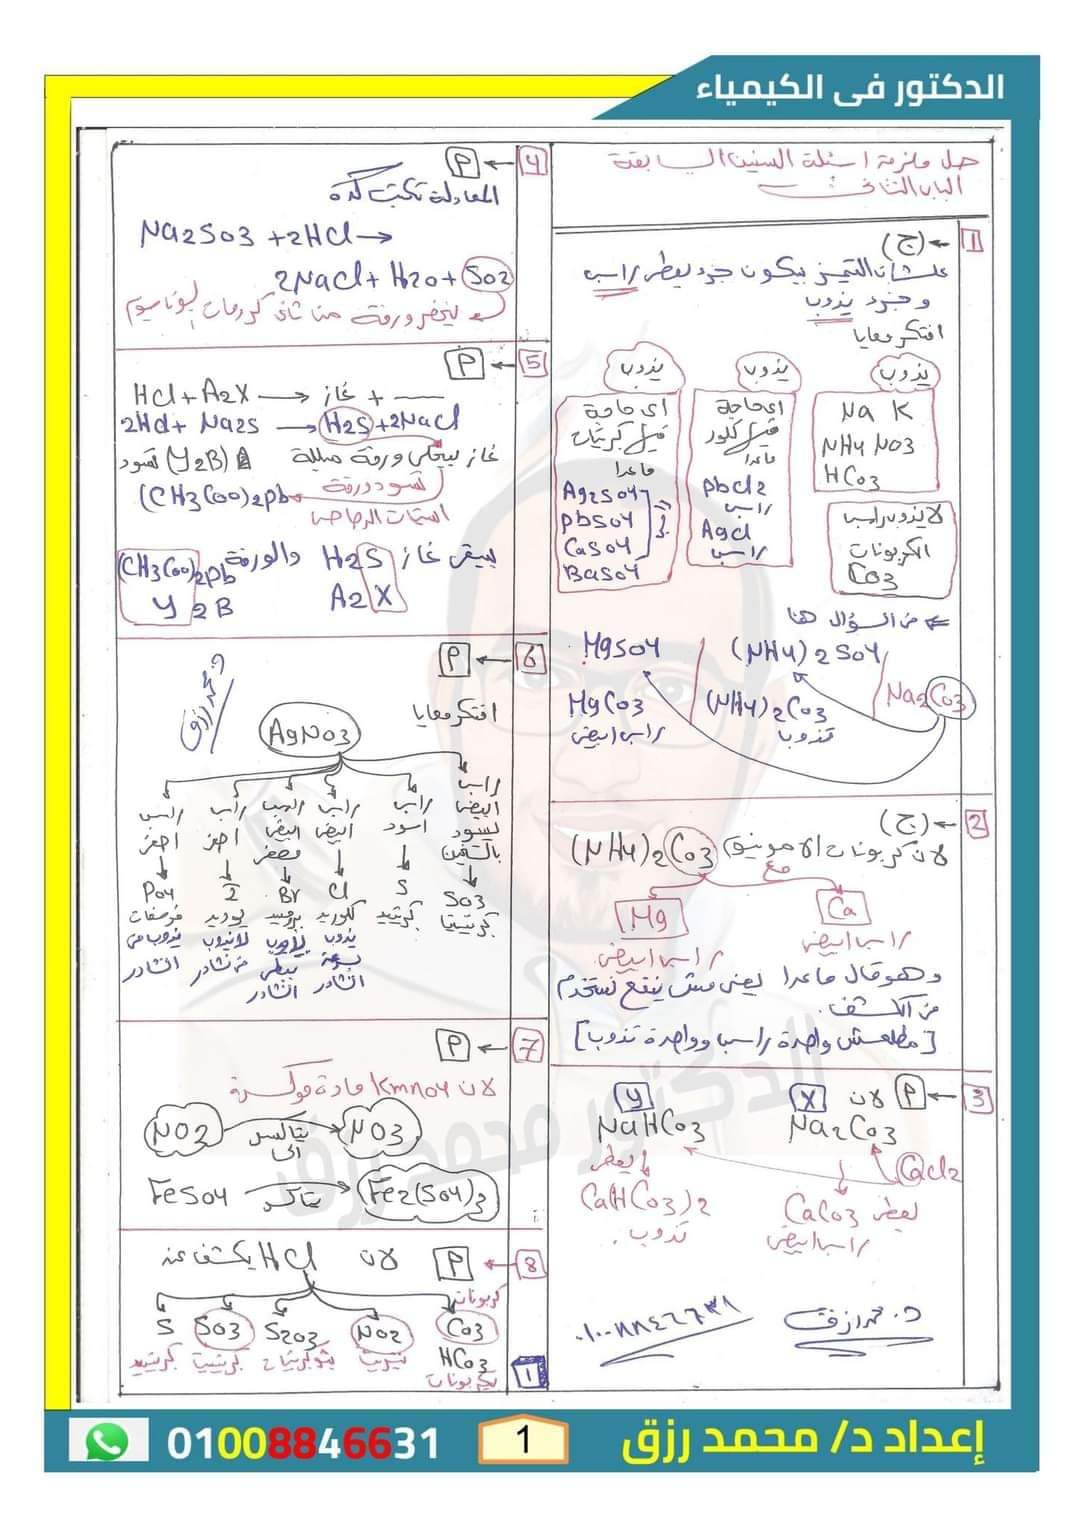 الدكتور فى الكيمياء
حل ملزمة اسئلة السنين السابقة
الباب الثانى
1 ← (ج)
علشان التميز بيكون جزء يعطى راسب
وجزء يذوب
افتكر معايا
يذوب
Na K
NH4 NO3
HCO3
لا يذوب راسب
الكربونات
CO3
يذوب
اى حاجة
فيها كلور
ماعدا
PbCl2
راسب
AgCl
راسب
يذوب
اى حاجة
فيها كبريتات
ماعدا
Ag2SO4
PbSO4
CaSO4
BaSO4
من السؤال هنا
Na2CO3
(NH4)2SO4
(NH4)2CO3
تذوب
MgSO4
MgCO3
راسب ابيض
2 ← (ج)
لان كربونات الامونيوم (NH4)2CO3
مع
Ca
راسب ابيض
Mg
راسب ابيض
وهو قال ماعدا يعنى مش ينفع نستخدم
فى الكشف.
[مطلعش واحدة راسب وواحدة تذوب]
3 ← أ لان
X
Na2CO3
Y
NaHCO3
CaCl2
يعطى CaCO3
راسب ابيض
يعطى
Ca(HCO3)2
تذوب.
د. محمد رزق
٠١٠٠٨٨٤٦٦٣١
4 ← أ
المعادلة تكتب كدة
Na2SO3 + 2HCl →
2NaCl + H2O + SO2
يخضر ورقة من ثانى كرومات البوتاسيوم
5 ← أ
HCl + A2X → غاز +
2HCl + Na2S → H2S + 2NaCl
غاز بيخلى ورقة مبللة (Y2B) تسود
تسود ورقة (CH3COO)2Pb
اسيتات الرصاص
يبقى غاز H2S والورقة (CH3COO)2Pb
A2X
Y2B
6 ← أ
افتكر معايا
محمد رزق
AgNO3
راسب ابيض يسود بالتسخين
SO3
كبريتيت
راسب اسود
S
كبريتيد
راسب ابيض
Cl
كلوريد
يذوب بسرعة النشادر
راسب ابيض مصفر
Br
بروميد
يذوب ببطئ النشادر
راسب اصفر
I
يوديد
لايذوب فى نشادر
راسب اصفر
PO4
فوسفات
يذوب فى النشادر
7 ← أ
لان KMnO4 مادة مؤكسدة
NO2 يتاكسد الى NO3
FeSO4 يتاكسد Fe2(SO4)3
8 ← أ لان HCl يكشف عن
كربونات
CO3
HCO3
بيكربونات
NO2
نيتريت
S2O3
ثيوكبريتات
SO3
كبريتيت
S
كبريتيد
١
الدكتور محمد رزق
إعداد د/ محمد رزق
1
01008846631